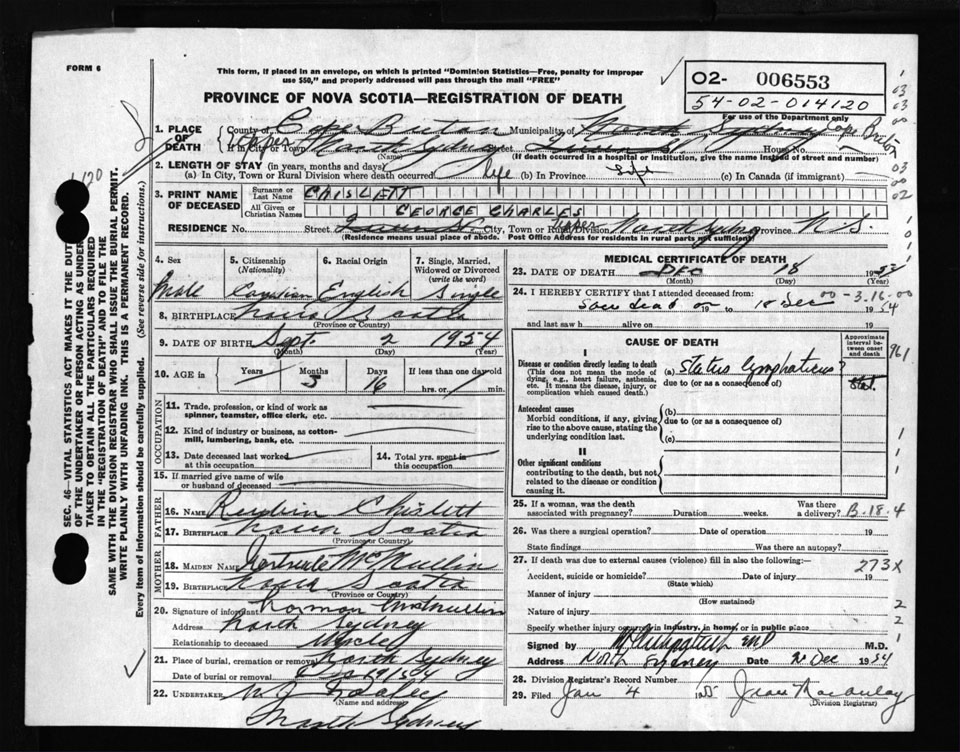 FORM 6
This form, if placed in an envelope, on which is printed "Dominion Statistics—Free, penalty for improper
use $50," and properly addressed will pass through the mail "FREE"
PROVINCE OF NOVA SCOTIA—REGISTRATION OF DEATH
O2- 006553
54-02-014120
For use of the Department only
1. PLACE OF DEATH
County of Cape Breton Municipality of North Sydney Cape Breton
If in City or Town Upper North Sydney Street Queen St. House No.
(Name) (If death occurred in a hospital or institution, give the name instead of street and number)
2. LENGTH OF STAY (in years, months and days)
(a) In City, Town or Rural Division where death occurred Life (b) In Province Life (c) In Canada (if immigrant)
3. PRINT NAME OF DECEASED
Surname or Last Name CHISLETT
All Given or Christian Names GEORGE CHARLES
RESIDENCE No. Street Queen St. City, Town or Rural Division Upper North Sydney Province N.S.
(Residence means usual place of abode. Post Office Address for residents in rural parts not sufficient)
4. Sex Male
5. Citizenship (Nationality) Canadian
6. Racial Origin English
7. Single, Married, Widowed or Divorced (write the word) Single
8. BIRTHPLACE Nova Scotia
(Province or Country)
9. DATE OF BIRTH Sept. 2 1954
(Month) (Day) (Year)
10. AGE in Years Months 3 Days 16 If less than one day old hrs. or min.
OCCUPATION
11. Trade, profession, or kind of work as spinner, teamster, office clerk, etc.
12. Kind of industry or business, as cotton-mill, lumbering, bank, etc.
13. Date deceased last worked at this occupation
14. Total yrs. spent in this occupation
15. If married give name of wife or husband of deceased
FATHER
16. NAME Reuben Chislett
17. BIRTHPLACE Nova Scotia
(Province or Country)
MOTHER
18. MAIDEN NAME Gertrude McMullin
19. BIRTHPLACE Nova Scotia
(Province or Country)
20. Signature of informant Norman McMullin
Address North Sydney
Relationship to deceased Uncle
21. Place of burial, cremation or removal North Sydney
Date of burial or removal Dec 19/1954
22. UNDERTAKER
(Name and address)
North Sydney
MEDICAL CERTIFICATE OF DEATH
23. DATE OF DEATH DEC 18 19
(Month) (Day) (Year)
24. I HEREBY CERTIFY that I attended deceased from:
Saw dead on 19 to 18 Dec 1954
00-3.16-00
and last saw h alive on 19
CAUSE OF DEATH
Approximate interval between onset and death
761
I
Disease or condition directly leading to death
(This does not mean the mode of dying, e.g., heart failure, asthenia, etc. It means the disease, injury, or complication which caused death.)
(a) Status lymphaticus?
due to (or as a consequence of)
Antecedent causes
Morbid conditions, if any, giving rise to the above cause, stating the underlying condition last.
(b)
due to (or as a consequence of)
(c)
II
Other significant conditions
contributing to the death, but not related to the disease or condition causing it.
25. If a woman, was the death associated with pregnancy? Duration weeks. Was there a delivery?
B-18-4
26. Was there a surgical operation? Date of operation 19
State findings Was there an autopsy?
27. If death was due to external causes (violence) fill in also the following:—
273X
Accident, suicide or homicide? Date of injury 19
(State which)
Manner of injury
(How sustained)
Nature of injury
Specify whether injury occurred in industry, in home, or in public place
Signed by M.D.
Address North Sydney Date Dec 1954
28. Division Registrar's Record Number
29. Filed Jan 4 1955 Jean Macaulay
(Division Registrar)
SEC. 46—VITAL STATISTICS ACT MAKES IT THE DUTY
OF THE UNDERTAKER OR PERSON ACTING AS UNDERTAKER TO OBTAIN ALL THE PARTICULARS REQUIRED
IN THE "REGISTRATION OF DEATH" AND TO FILE THE
SAME WITH THE DIVISION REGISTRAR WHO SHALL ISSUE THE BURIAL PERMIT.
WRITE PLAINLY WITH UNFADING INK. THIS IS A PERMANENT RECORD.
Every item of information should be carefully supplied. (See reverse side for instructions.)